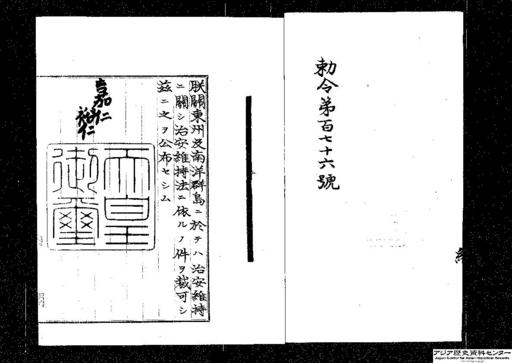 勅令第百七十六號
朕關東州及南洋群島ニ於テハ治安維持
ニ關シ治安維持法ニ依ルノ件ヲ裁可シ
茲ニ之ヲ公布セシム
嘉仁
裕仁
天皇
御璽
アジア歴史資料センター
Japan Center for Asian Historical Records